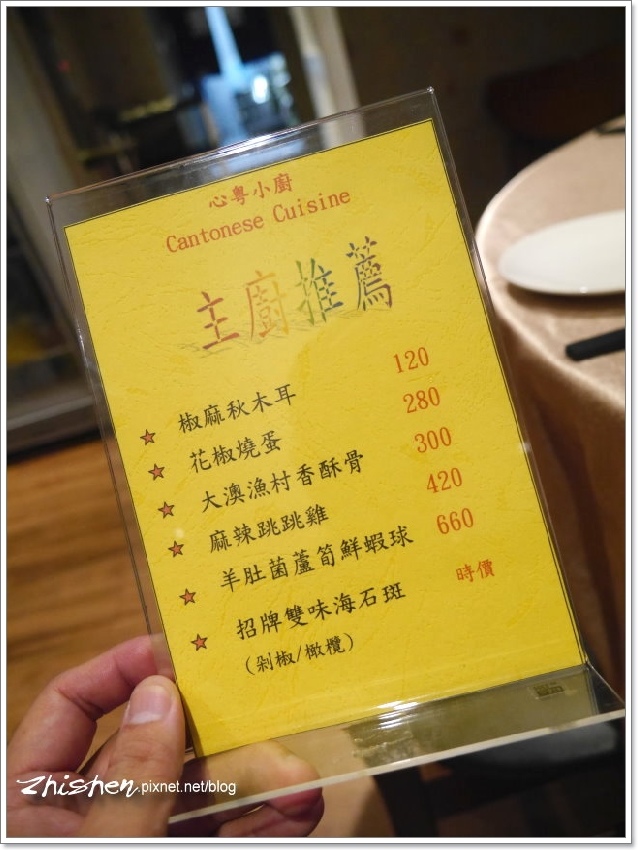 心粵小廚
Cantonese Cuisine
主廚推薦
椒麻秋木耳 120
花椒燒蛋 280
大澳漁村香酥骨 300
麻辣跳跳雞 420
羊肚菌蘆筍鮮蝦球 660
招牌雙味海石斑 時價
(剁椒/橄欖)
Zhishen.pixnet.net/blog